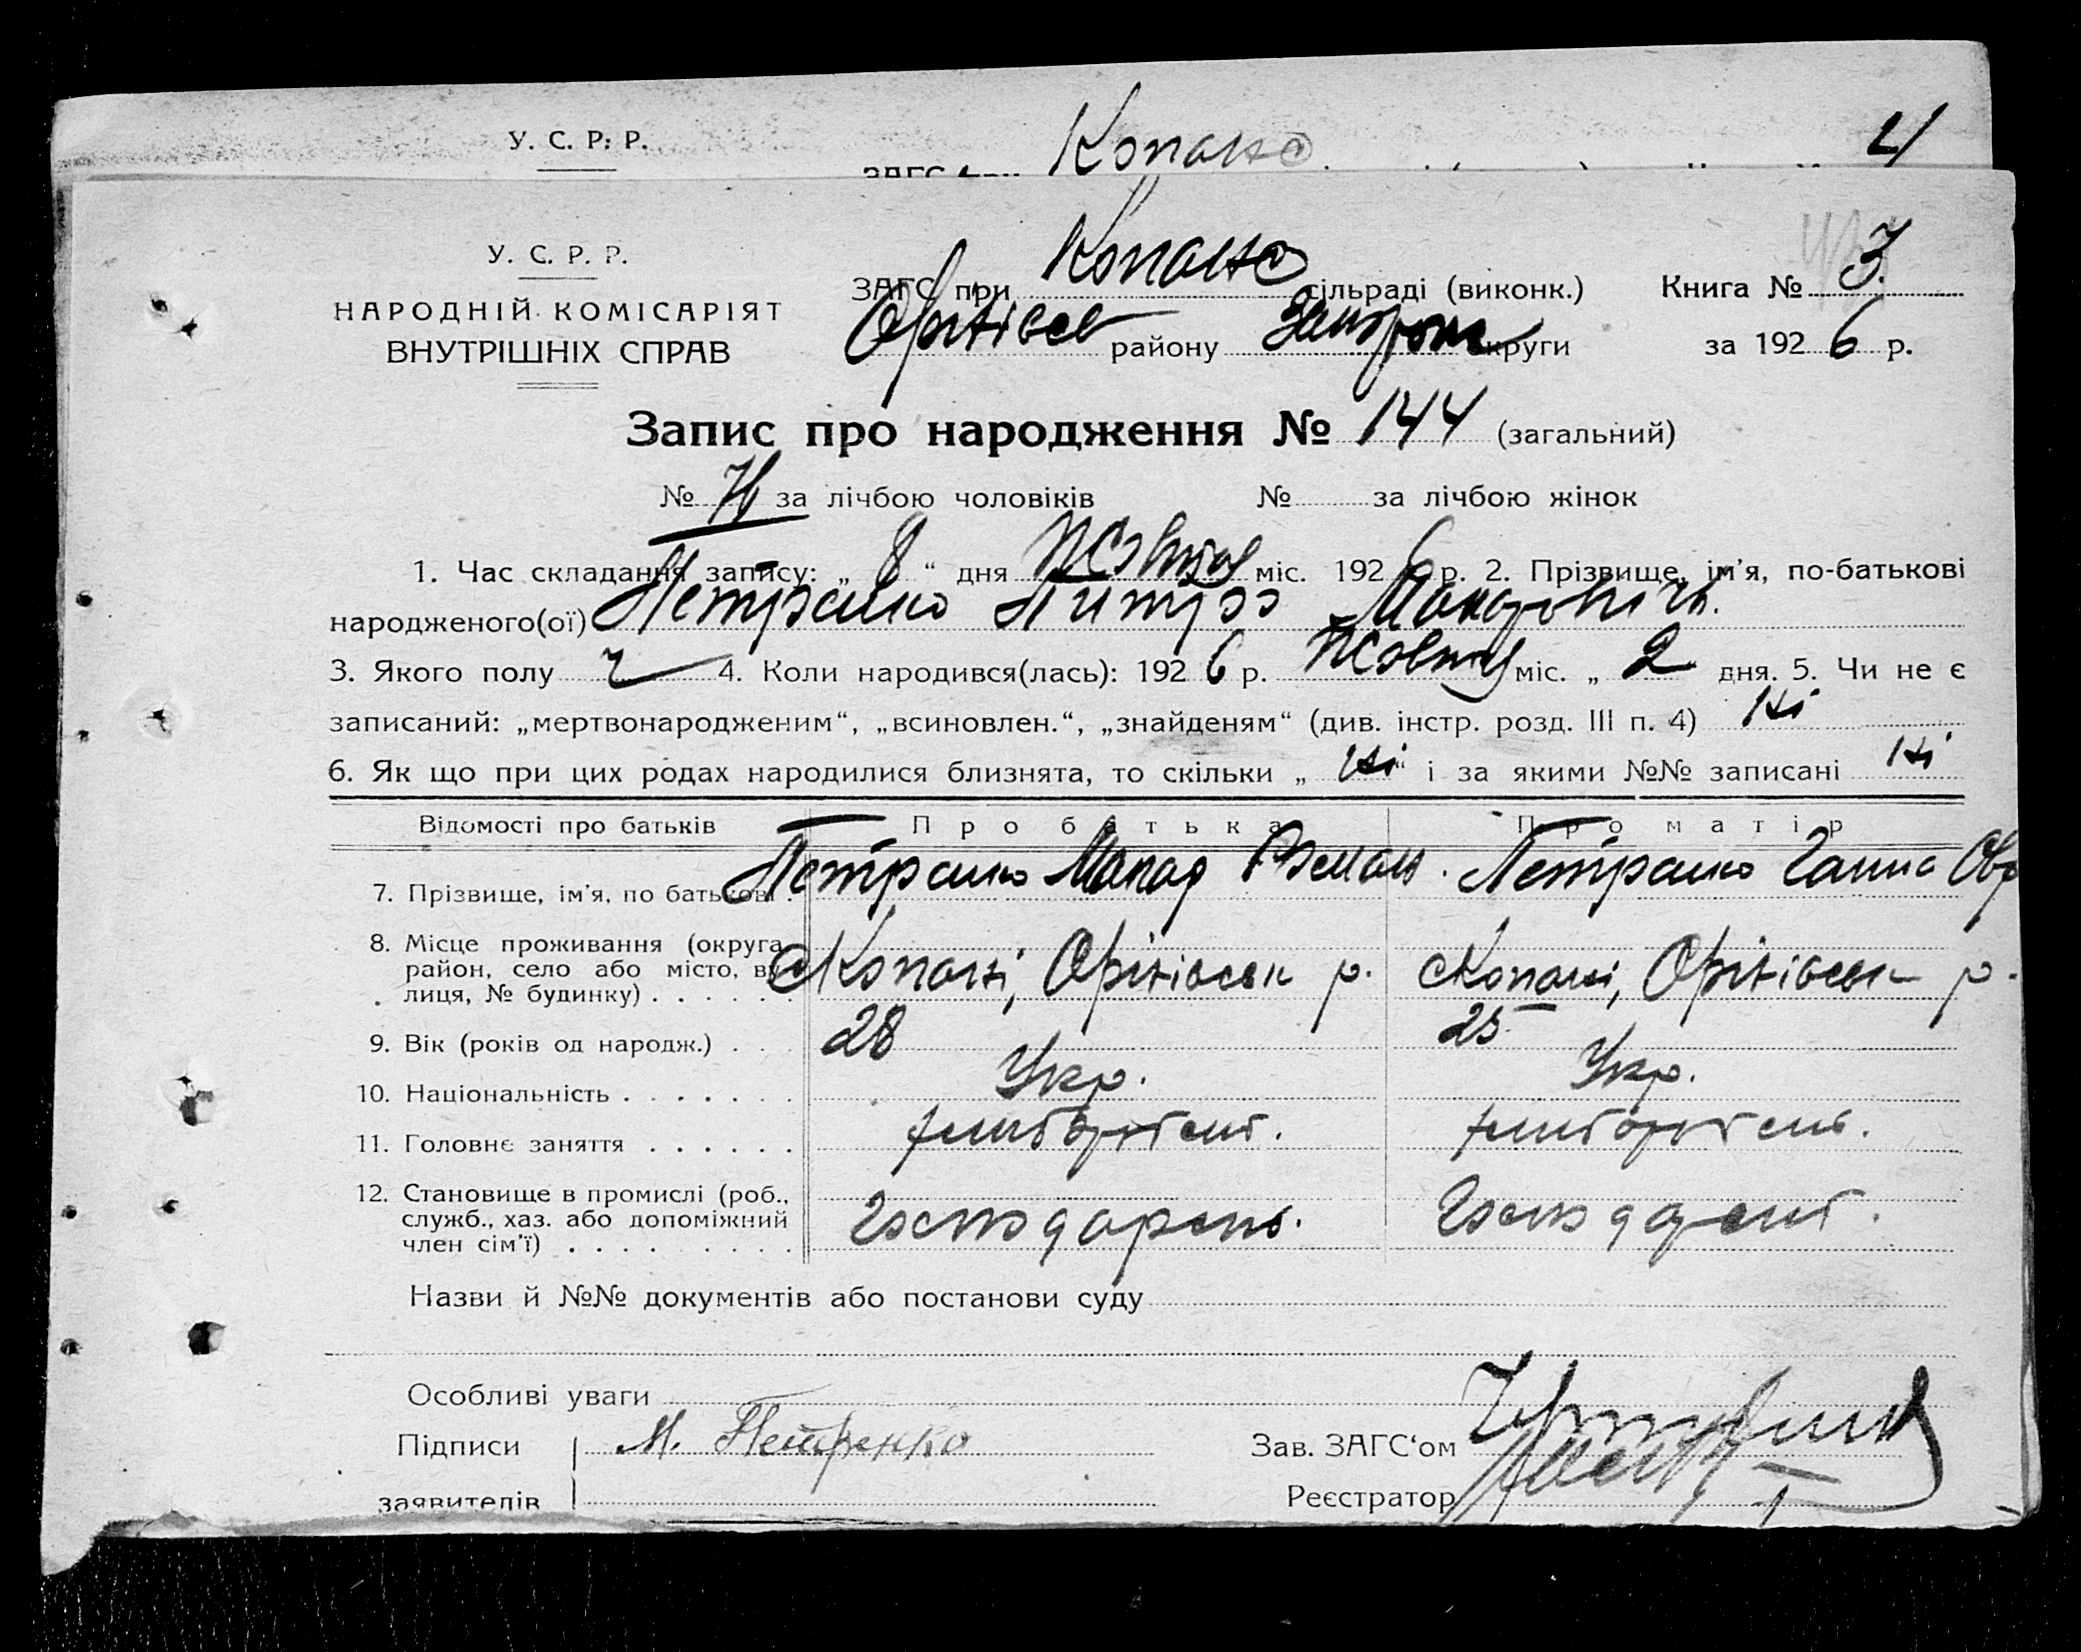 У. С. Р. Р.
Копано 4
У. С. Р. Р.
НАРОДНІЙ КОМІСАРІЯТ
ВНУТРІШНІХ СПРАВ
ЗАГС при Копано сільраді (виконк.) Книга № 3
Оріхівск району Запоріж округи за 1926 р.
Запис про народження № 144 (загальний)
№ за лічбою чоловіків № за лічбою жінок
1. Час складання запису: „ 8 “ дня жовтня міс. 1926 р. 2. Прізвище, ім'я, по-батькові
народженого(ої) Петренко
3. Якого полу ч 4. Коли народився(лась): 1926 р. жовтня міс. „ 2 дня. 5. Чи не є
записаний: „мертвонародженим“, „всиновлен.“, „знайденям“ (див. інстр. розд. III п. 4) ні
6. Як що при цих родах народилися близнята, то скільки „ ні “ і за якими №№ записані ні
Відомості про батьків Про батька Про матір
7. Прізвище, ім'я, по батькові. Петренко Макар Роман. Петренко Ганна
8. Місце проживання (округа,
район, село або місто, ву-
лиця, № будинку) . . . . . . с Копані, Оріхівськ р. с Копані, Оріхівськ р.
9. Вік (років од народж.) . . . 28 25
10. Національність . . . . . . . Укр. Укр.
11. Головнє заняття . . . . . . хліборобст. хліборобст.
12. Становище в промислі (роб.,
служб., хаз. або допоміжний
член сім'ї) . . . . . . . . .
Назви й №№ документів або постанови суду
Особливі уваги
Підписи М. Петренко Зав. ЗАГС‘ом
заявителів Реєстратор